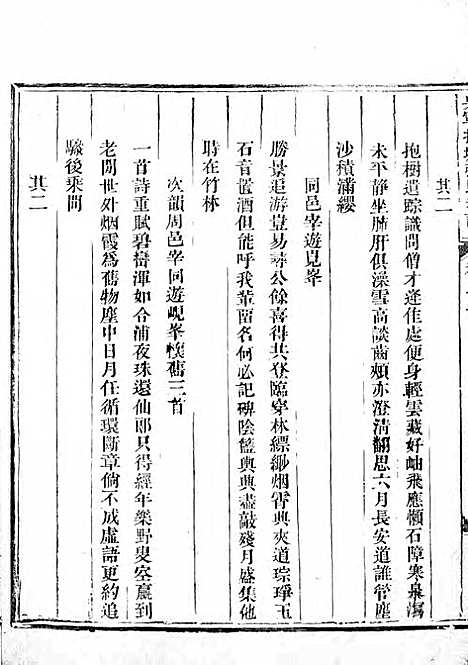 其二
抱樹遺踪識問僧才逢佳處便身輕雲藏好岫飛應懶石障寒泉瀉
未平靜坐肺肝俱澡雪高談齒頰亦澄清翻思六月長安道誰管塵
沙積滿纓
同邑宰遊峴峯
勝景追游豈易尋公餘喜得共登臨穿林縹緲烟霄興夾道琮琤玉
石音置酒但能呼我輩留名何必記碑陰籃輿興盡敲殘月盛集他
時在竹林
次韻周邑宰同遊峴峯懷舊三首
一首詩重賦碧巒渾如合浦夜珠還仙郎只得經年樂野叟空嬴到
老閒世外烟霞爲舊物塵中日月任循環斷章倘不成虛語更約追
驂後乘間
其二